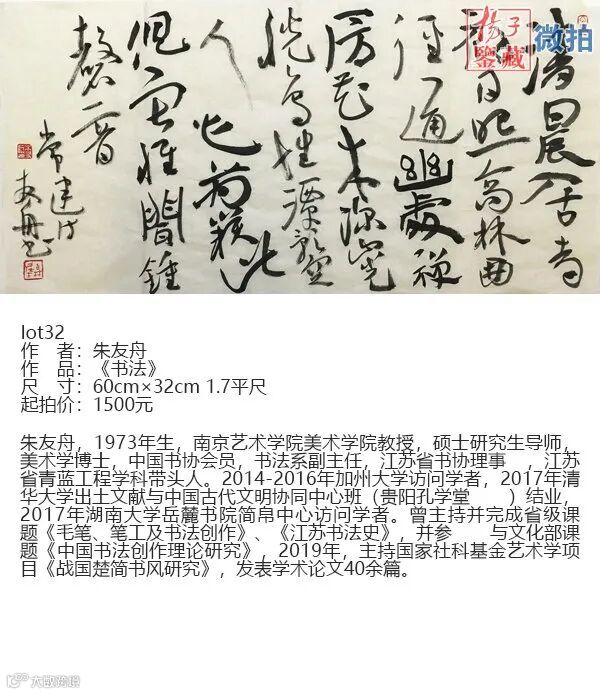 清晨入古寺
初日照高林曲
徑通幽處禅
房花木深山光
悦鳥性潭影空
人心萬籟此
俱寂惟聞鍾
磬音
常建诗
友舟
扬子
鉴藏
微拍
lot32
作 者：朱友舟
作 品：《书法》
尺 寸：60cm×32cm 1.7平尺
起拍价：1500元
朱友舟，1973年生，南京艺术学院美术学院教授，硕士研究生导师，
美术学博士，中国书协会员，书法系副主任，江苏省书协理事 ，江苏
省青蓝工程学科带头人。2014-2016年加州大学访问学者，2017年清
华大学出土文献与中国古代文明协同中心班（贵阳孔学堂 ）结业，
2017年湖南大学岳麓书院简帛中心访问学者。曾主持并完成省级课
题《毛笔、笔工及书法创作》、《江苏书法史》，并参 与文化部课
题《中国书法创作理论研究》，2019年，主持国家社科基金艺术学项
目《战国楚简书风研究》，发表学术论文40余篇。
大数跨境